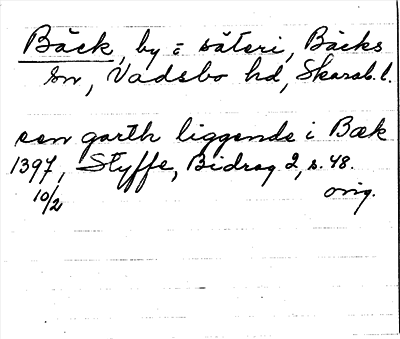 Bäck, by = säteri, Bäcks
sn, Vadsbo hd, Skarab. l.
een garth liggende i Bæk
1397, Styffe, Bidrag 2, s. 48.
10/2 orig.